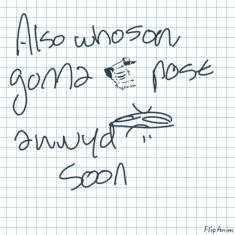 Also whoson
gonna post
anwyd
soon
FlipAnim